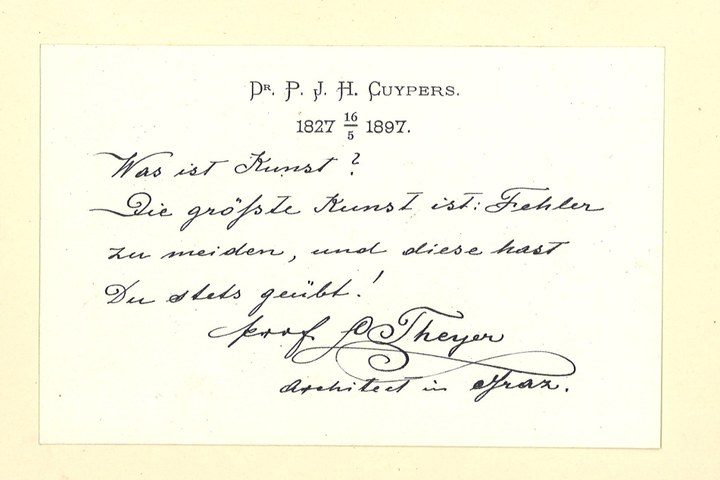 Dr. P. J. H. Cuypers.
1827 16/5 1897.
Was ist Kunst?
Die größte Kunst ist: Fehler
zu meiden, und diese hast
Du stets geübt!
Prof Theyer
Architect in Graz.